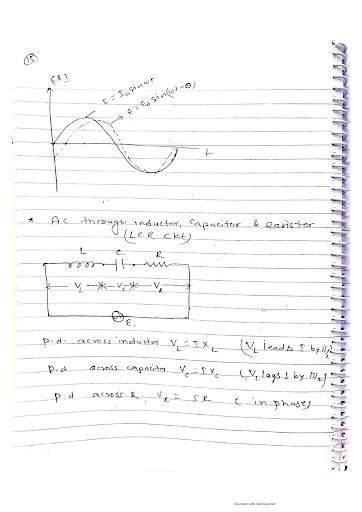 (15)
E & I
E = I₀ sin ωt
E = E₀ sin(ωt - θ)
t
* AC through inductor, capacitor & Resistor
(LCR CKt)
L C R
V_L V_C V_R
E
p.d. across inductor V_L = I X_L (V_L leads I by π/2)
p.d across capacitor V_C = I X_C (V_L lags I by π/2)
p.d across R, V_R = IR (in phase)
Scanned with CamScanner